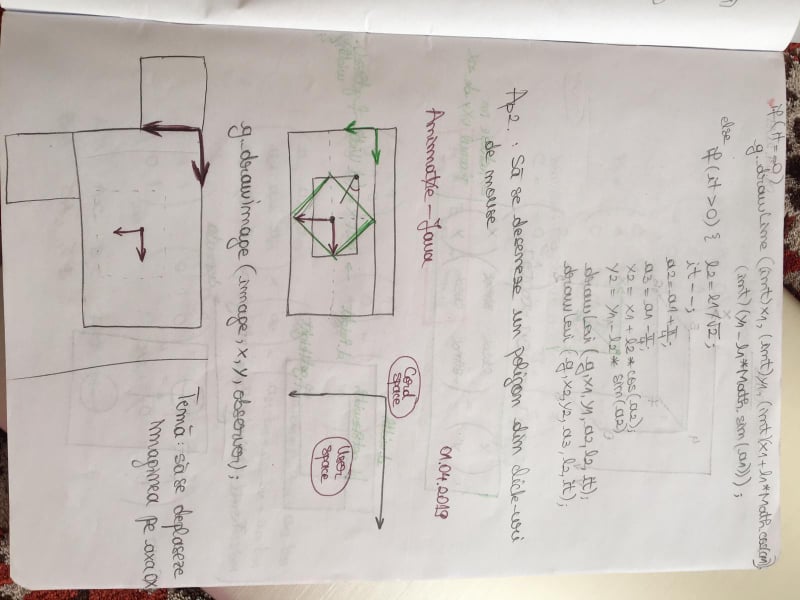 if(it==0)
g.drawLine((int)x1, (int)y1, (int)(x1+l1*Math.cos(a1),
(int)(y1-l1*Math.sin(a1)));
else
if(it>0){ l2=l1/√2;
it--;
a2=a1+π/4;
a3=a1-π/4;
x2=x1+l2*cos(a2);
y2=y1-l2*sin(a2)
drawLevi(g,x1,y1,a2,l2,it);
drawLevi(g,x2,y2,a3,l2,it);
Ap2.: Să se deseneze un poligon din click-uri
de mouse
01.04.2019
Animație-Java
Cord
space
User
space
g.drawimage(image,x,y,observer);
Temă: să se deplaseze
imaginea pe axa OX